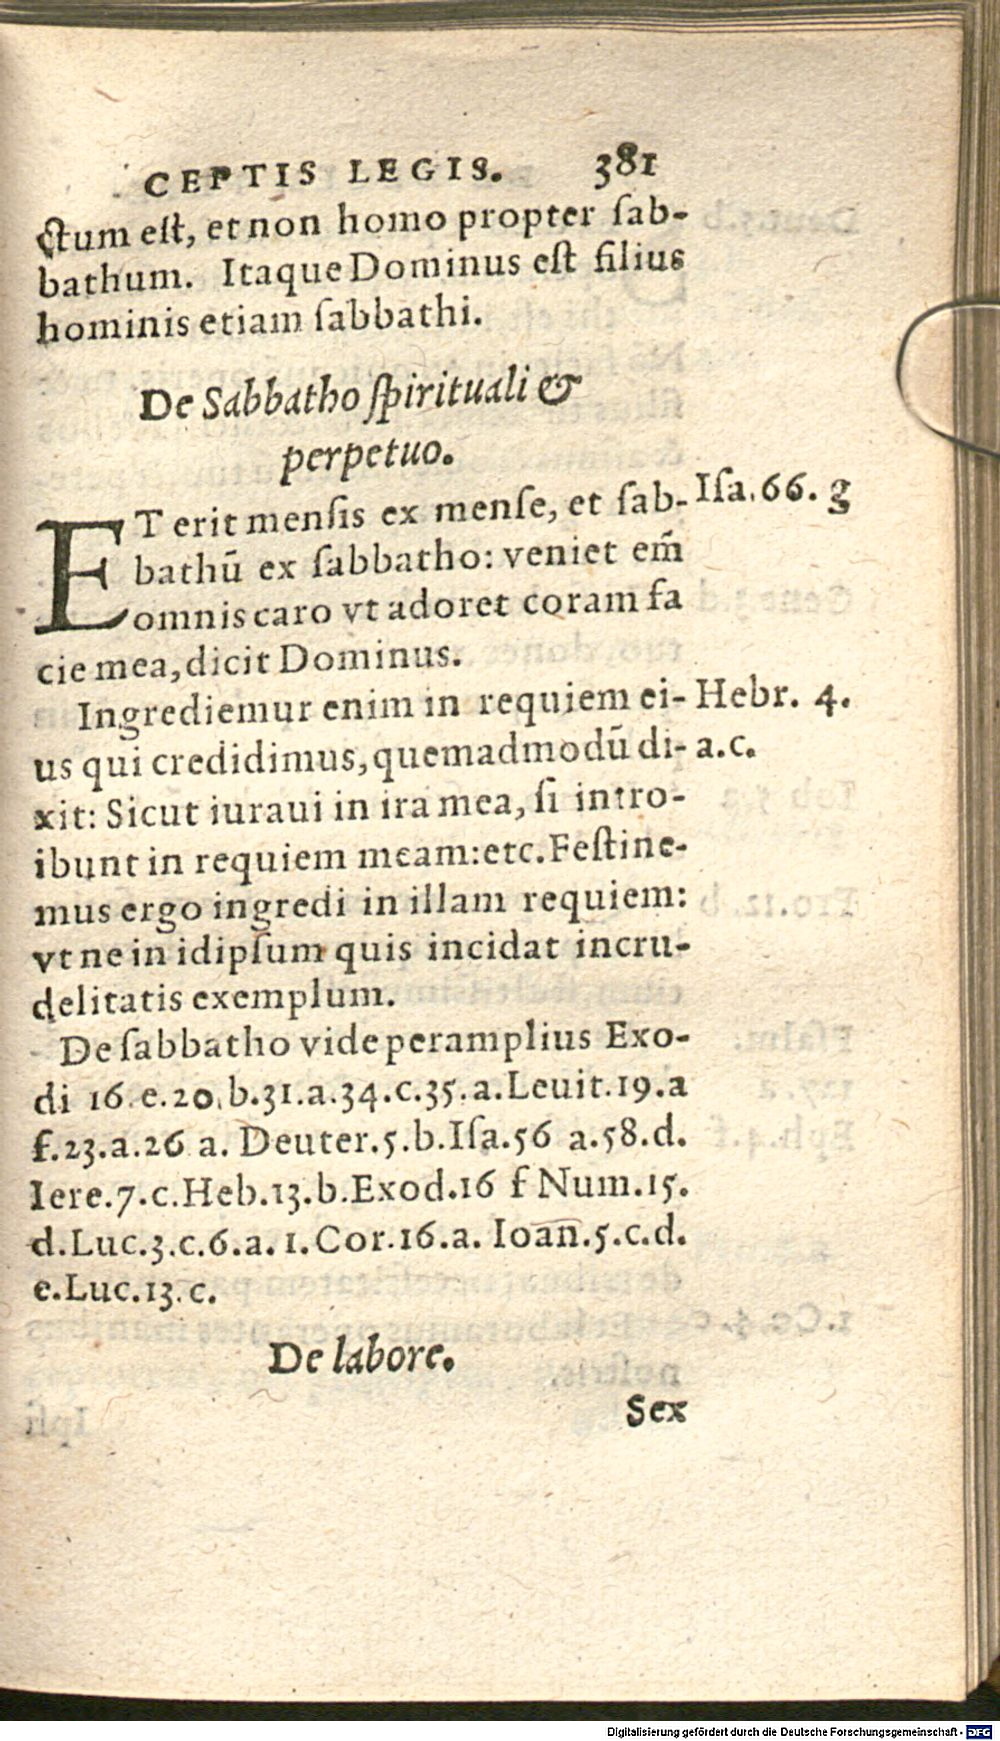 CEPTIS LEGIS. 381
ctum eſt, et non homo propter ſab-
bathum. Itaque Dominus eſt filius
hominis etiam ſabbathi.
De Sabbatho ſpirituali &
perpetuo.
ET erit menſis ex menſe, et ſab- Iſa. 66. g
bathū ex ſabbatho: veniet em̄
omnis caro vt adoret coram fa
cie mea, dicit Dominus.
Ingrediemur enim in requiem ei- Hebr. 4.
us qui credidimus, quemadmodū di- a.c.
xit: Sicut iuraui in ira mea, ſi intro-
ibunt in requiem meam: etc. Feſtine-
mus ergo ingredi in illam requiem:
vt ne in idipſum quis incidat incru-
delitatis exemplum.
De ſabbatho vide peramplius Exo-
di 16.e.20.b.31.a.34.c.35.a.Leuit.19.a
f.23.a.26 a. Deuter.5.b.Iſa.56 a.58.d.
Iere.7.c.Heb.13.b.Exod.16 f Num.15.
d.Luc.3.c.6.a. 1. Cor.16.a. Ioan.5.c.d.
e.Luc.13.c.
De labore.
Sex
Digitalisierung gefördert durch die Deutsche Forschungsgemeinschaft - DFG